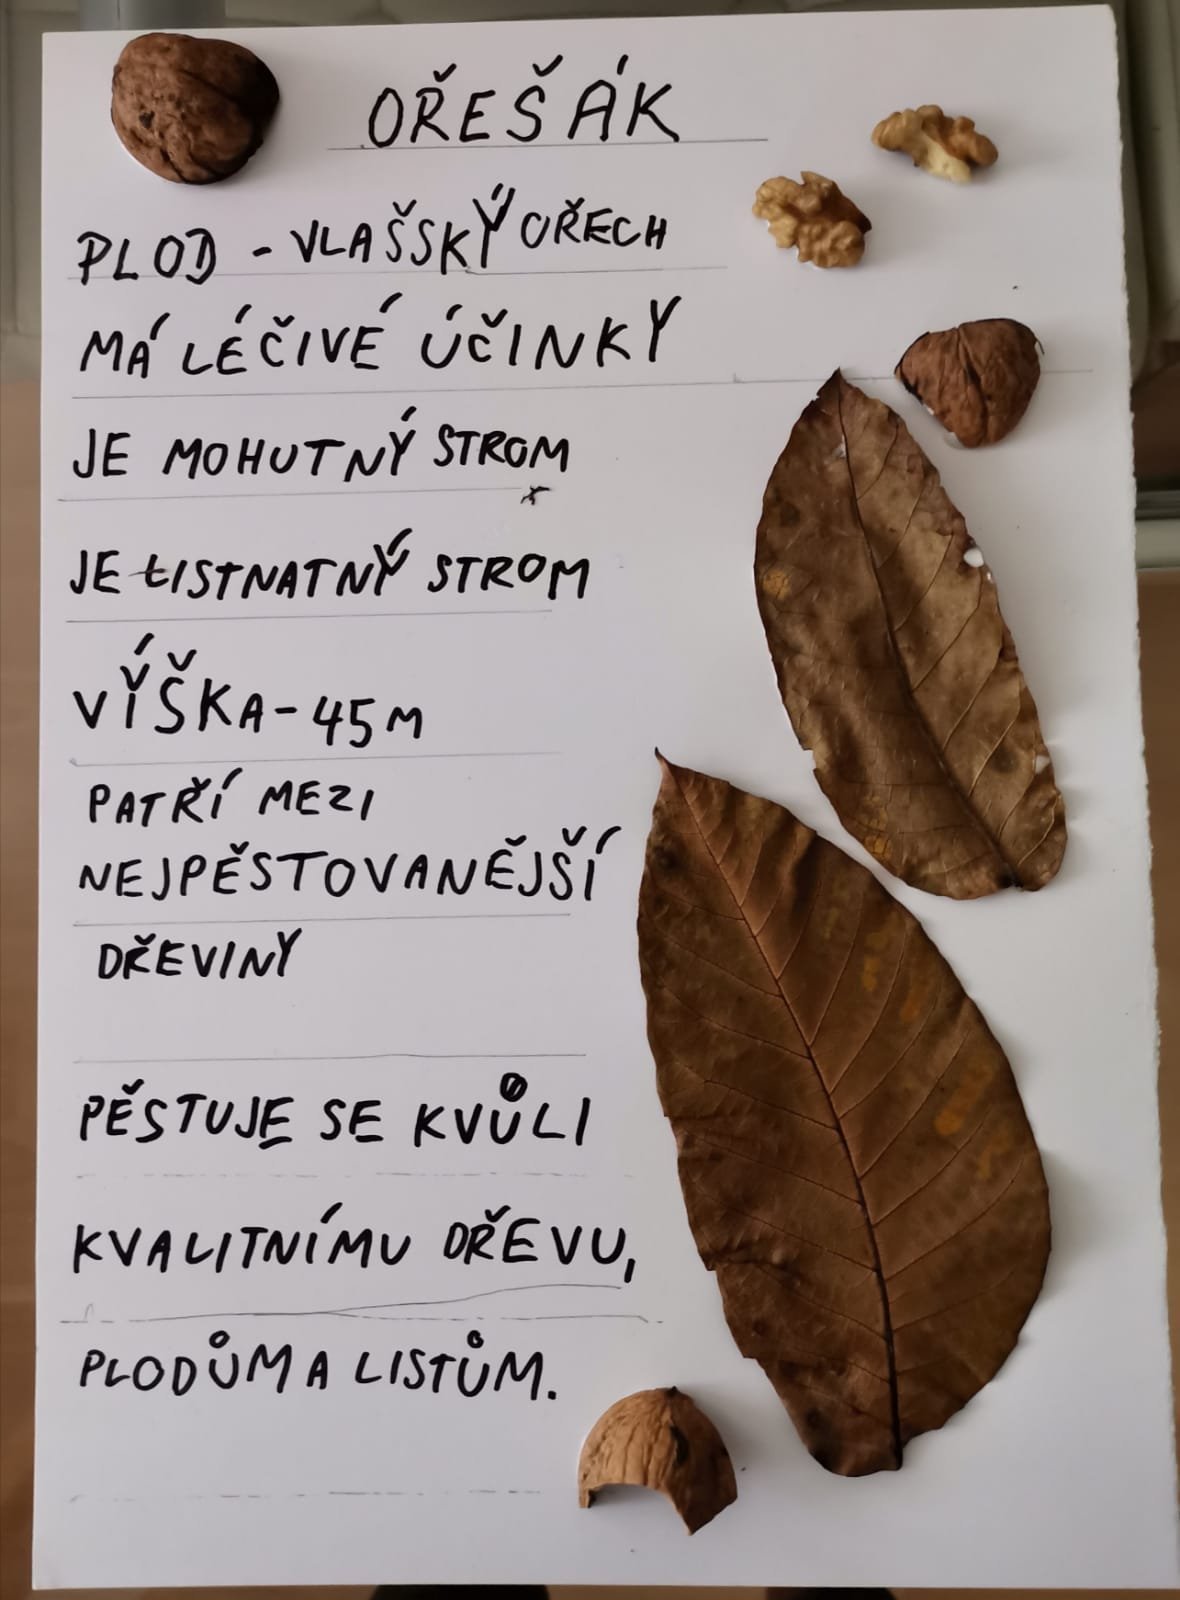 OŘEŠÁK
PLOD - VLAŠSKÝ OŘECH
MÁ LÉČIVÉ ÚČINKY
JE MOHUTNÝ STROM
JE LISTNATNÝ STROM
VÝŠKA - 45 M
PATŘÍ MEZI
NEJPĚSTOVANĚJŠÍ
DŘEVINY
PĚSTUJE SE KVŮLI
KVALITNÍMU DŘEVU,
PLODŮM A LISTŮM.